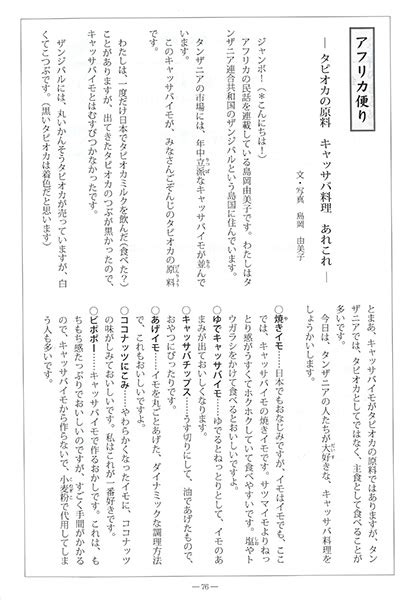 アフリカ便り
― タピオカの原料 キャッサバ料理 あれこれ ―
文・写真 島岡 由美子
ジャンボ!(*こんにちは!)
アフリカの民話を連載している島岡由美子です。わたしはタ
ンザニア連合共和国のザンジバルという島国に住んでいます。
タンザニアの市場には、年中立派なキャッサバイモが並んで
います。
このキャッサバイモが、みなさんごぞんじのタピオカの原料
です。
わたしは、一度だけ日本でタピオカミルクを飲んだ(食べた?)
ことがありますが、出てきたタピオカのつぶが黒かったので、
キャッサバイモとはむすびつかなかったです。
ザンジバルには、丸いかんそうタピオカが売っていますが、白
くてこつぶです。(黒いタピオカは着色だと思います)
とまあ、キャッサバイモがタピオカの原料ではありますが、タン
ザニアでは、タピオカとしてではなく、主食として食べることが
多いです。
今日は、タンザニアの人たちが大好きな、キャッサバ料理を
しょうかいします。
○焼きイモ……日本でもおなじみですが、イモはイモでも、ここ
では、キャッサバイモの焼きイモです。サツマイモよりねっ
とり感がうすくてホクホクしていて食べやすいです。塩やト
ウガラシをかけて食べるとおいしいですよ。
○ゆでキャッサバイモ……ゆでるとねっとりとして、イモのあ
まみが出ておいしくなります。
○キャッサバチップス……うす切りにして、油であげたもので、
おやつにぴったりです。
○あげイモ……イモを丸ごとあげた、ダイナミックな調理方法
で、これもおいしいですよ。
○ココナッツにこみ……やわらかくなったイモに、ココナッツ
の味がしみておいしいです。私はこれが一番好きです。
○ビボボー……キャッサバイモで作るおかしです。これは、も
ちもち感たっぷりでおいしいのですが、すごく手間がかかる
ので、キャッサバイモから作らないで、小麦粉で代用してしま
う人も多いです。
― 76 ―